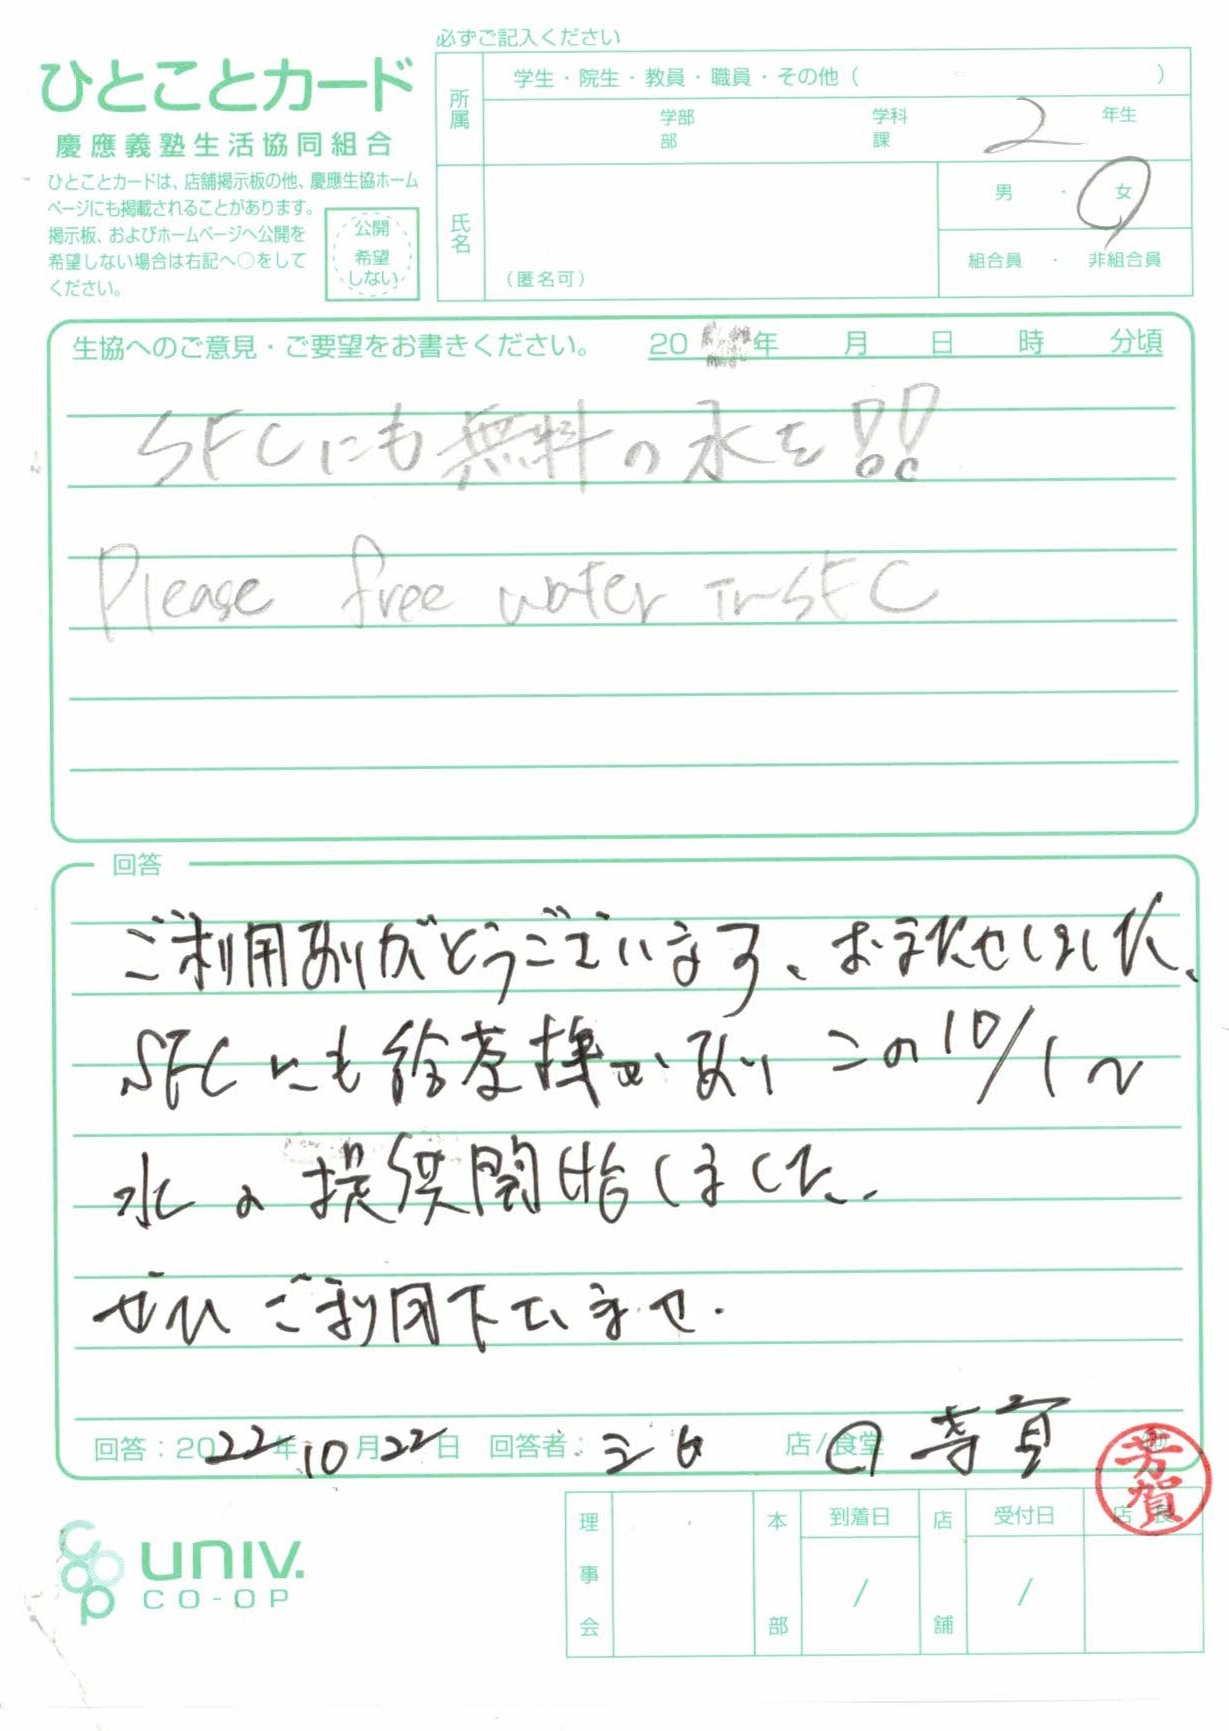 必ずご記入ください
ひとことカード
慶應義塾生活協同組合
ひとことカードは、店舗掲示板の他、慶應生協ホーム
ページにも掲載されることがあります。
掲示板、およびホームページへ公開を
希望しない場合は右記へ○をして
ください。
公開
希望
しない
所属
学生・院生・教員・職員・その他（ ）
学部 学科 2 年生
部 課
氏名
（匿名可）
男 ・ 女
組合員 ・ 非組合員
生協へのご意見・ご要望をお書きください。 20 年 月 日 時 分頃
SFCにも無料の水を!!
Please free water in SFC
回答
ご利用ありがとうございます、おまたせしました、
SFCにも給茶機があり この10/1〜
水の提供開始しました。
ぜひ ご利用下さいませ.
回答：2022年10月22日 回答者： 店/食堂
芳賀
店長
UNIV.
CO-OP
理事会
本部
到着日
/
店舗
受付日
/